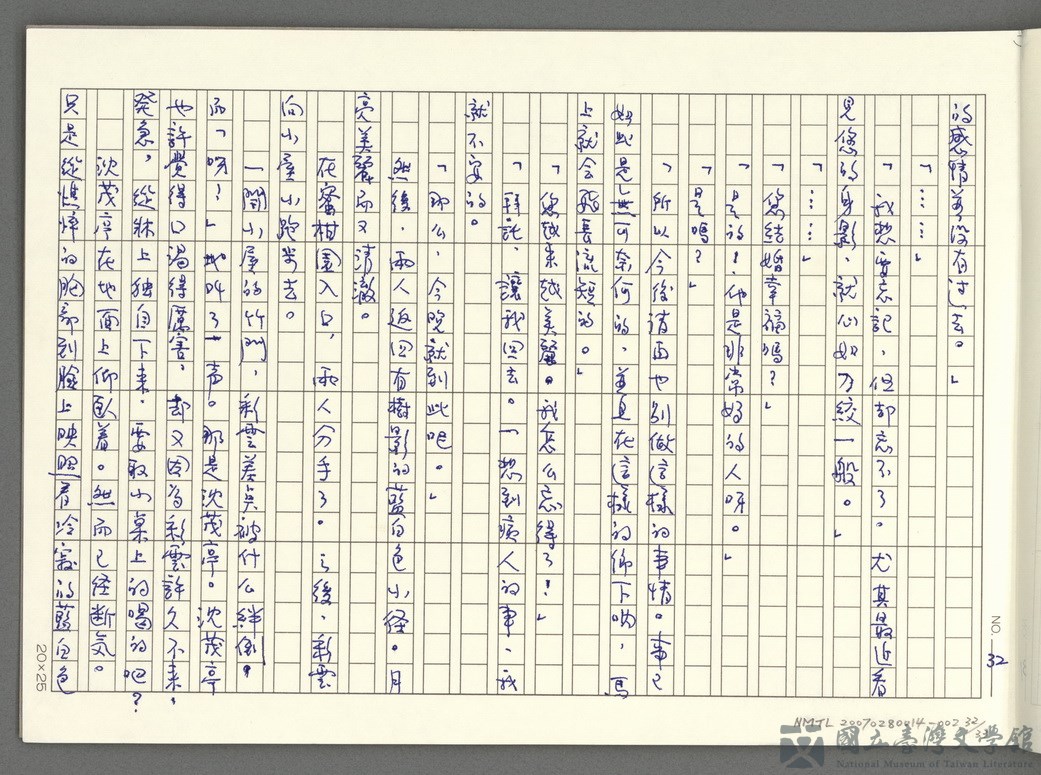 的感情並沒有过去。」
「……」
「我想要忘記，但却忘不了。尤其最近看
見您的身影，就心如刀絞一般。」
「……」
「您結婚幸福嗎？」
「是的！他是非常好的人呀。」
「是嗎？」
「所以今後請再也別做這樣的事情。事已
如此是無可奈何的，並且在這樣的鄉下吶，馬
上就会飛長流短的。」
「您越来越美麗。我怎么忘得了！」
「拜託、讓我回去。一想到病人的事，我
就不安的。
「那么，今晚就到此吧。」
然後，兩人返回有樹影的藍白色小径。月
亮美麗而又清澈。
在蜜柑園入口，兩人分手了。之後，彩雲
向小屋小跑步去。
一開小屋的竹門，彩雲差点被什么絆倒，
而「呀！」地叫了一声。那是沈茂亭。沈茂亭
也許覺得口渴得厲害，却又因為彩雲許久不来，
発急，從牀上独自下来，要取小桌上的喝的吧？
沈茂亭在地面上仰臥着。然而已経断気。
只是從憔悴的胸部到臉上映照着冷寂的藍白色
NO. 32
20×25
NMTL 20070280014-002 32/
國立臺灣文學館
National Museum of Taiwan Literature